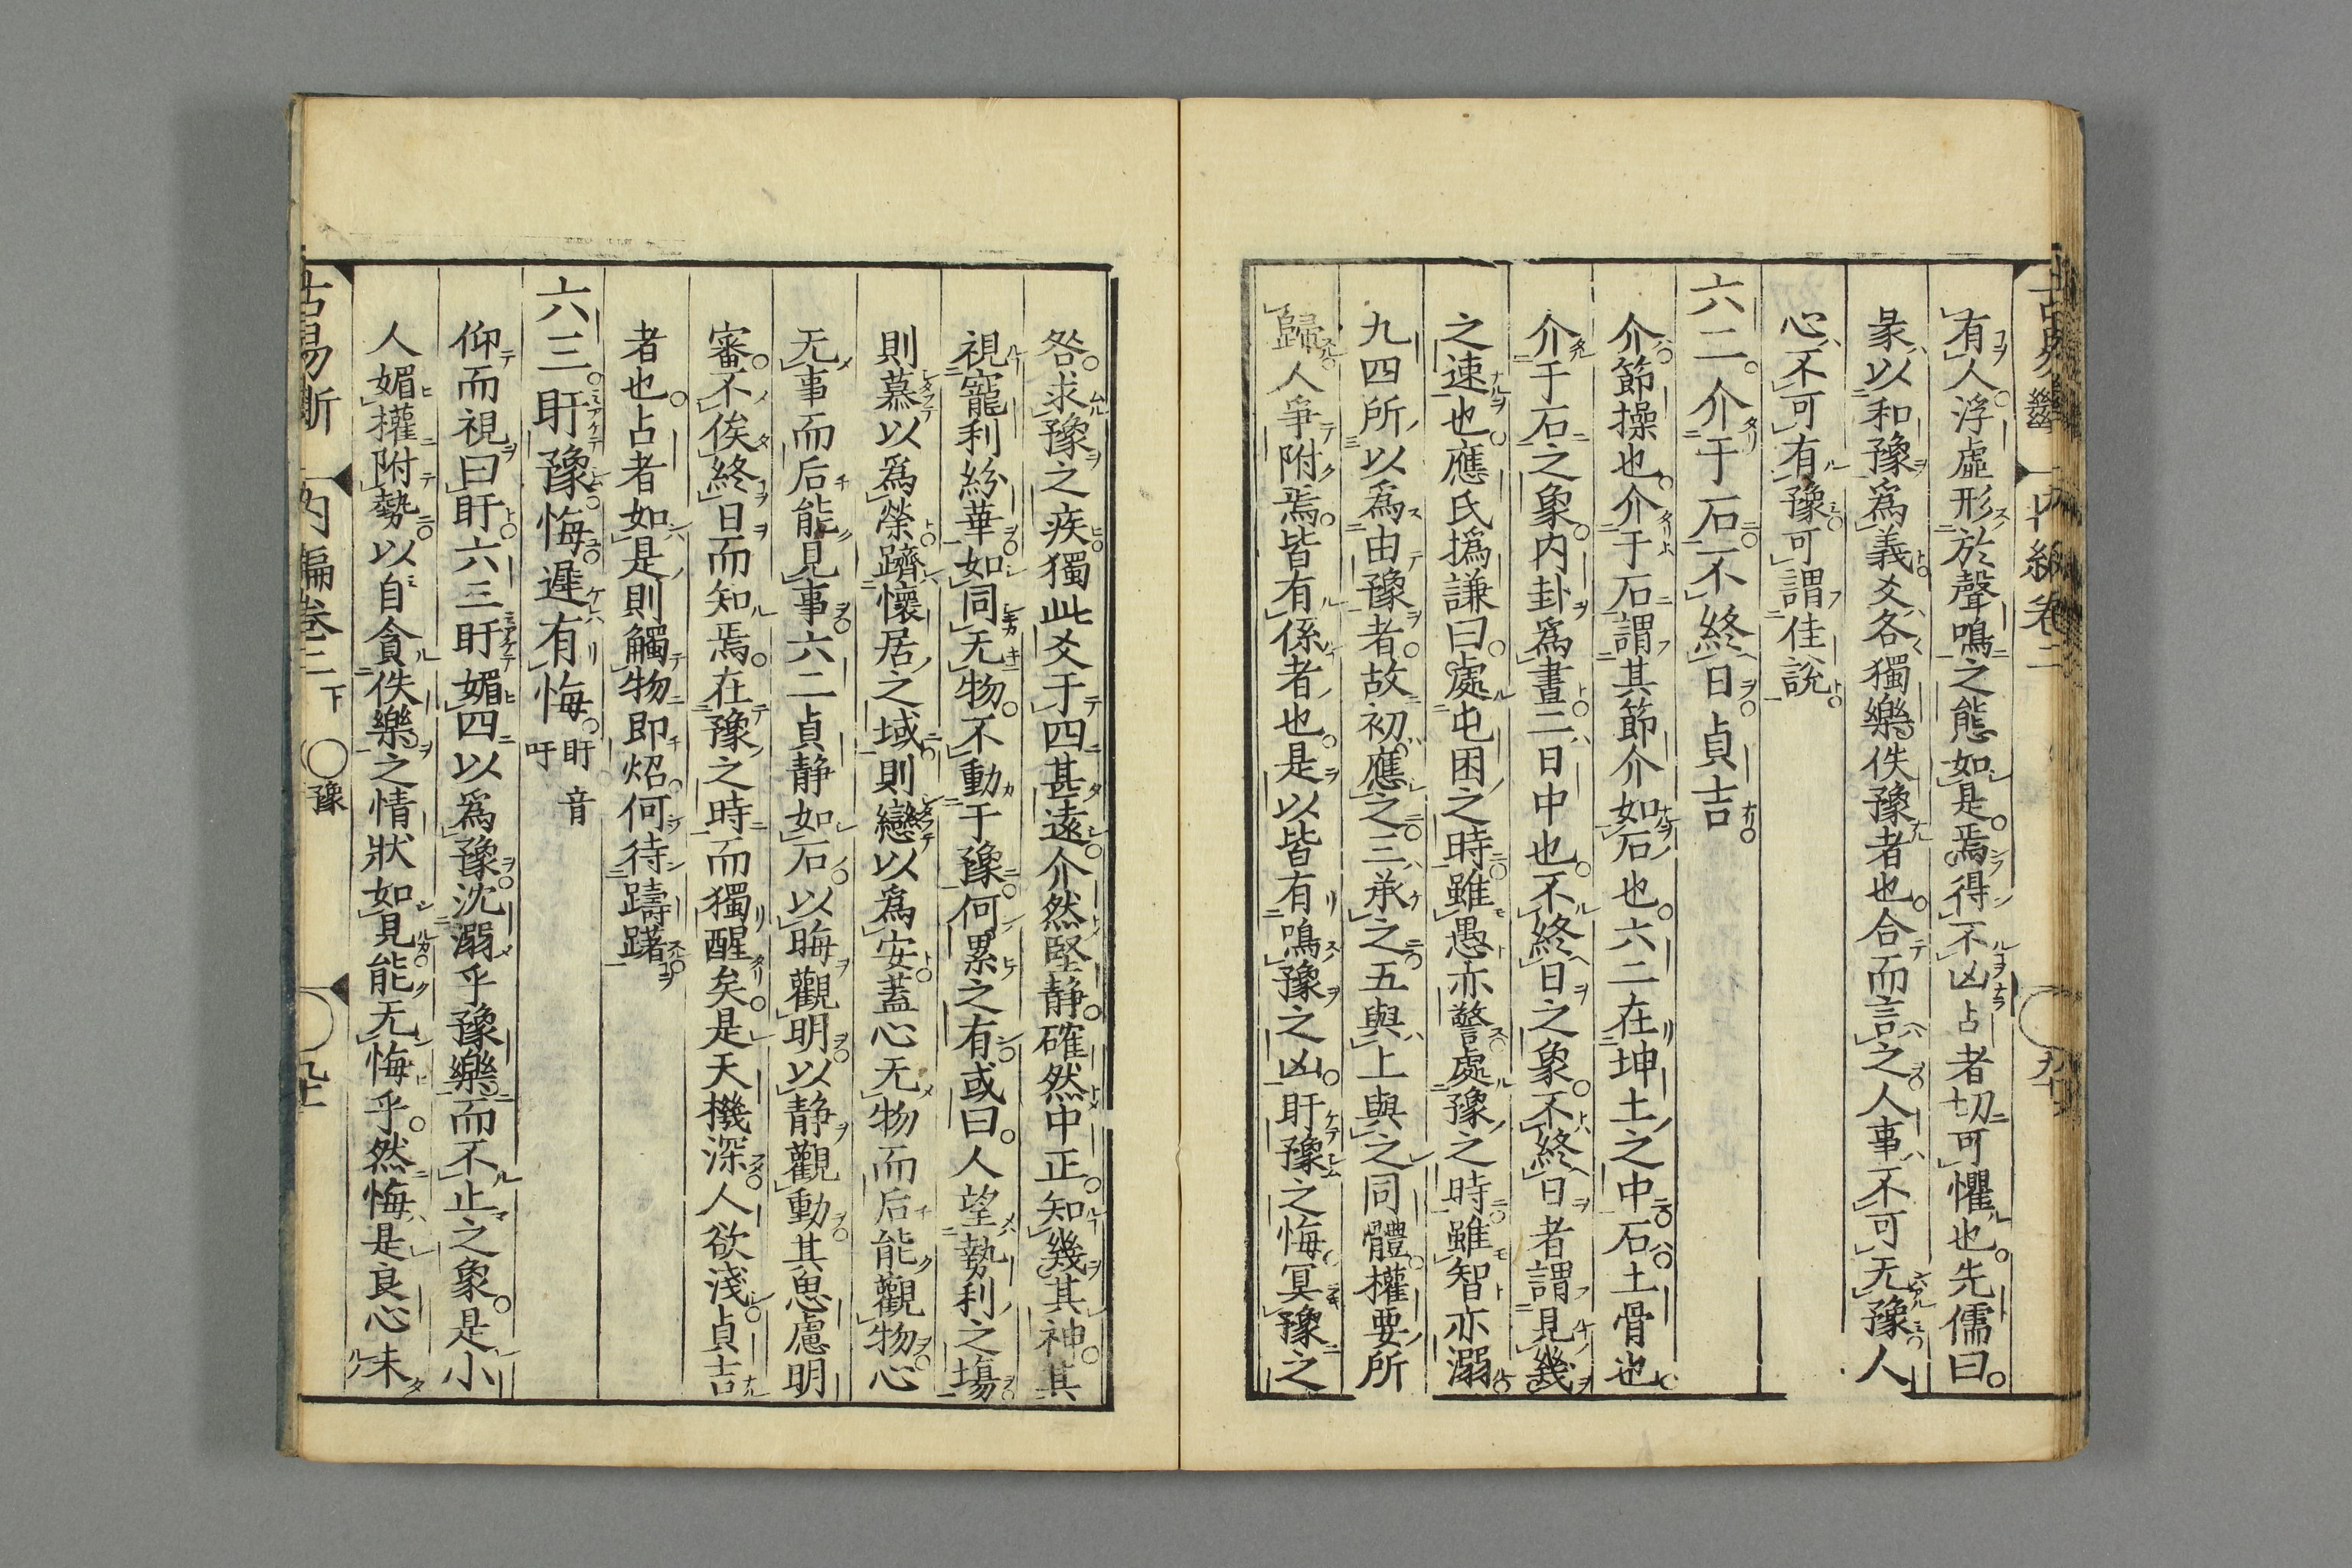 有人浮虛形於聲鳴之態如是焉得不凶占者切可懼也先儒曰
彖以和豫爲義爻各獨樂佚豫者也合而言之人事不可无豫人
心不可有豫可謂佳說
六二介于石不終日貞吉
介節操也介于石謂其節介如石也六二在坤土之中石土骨也
介于石之象内卦爲晝二日中也不終日之象不終日者謂見幾
之速也應氏撝謙曰處屯困之時雖愚亦警處豫之時雖智亦溺
九四所以爲由豫者故初應之三承之五與上與之同體權要所
歸人爭附焉皆有係者也是以皆有鳴豫之凶盱豫之悔冥豫之
咎求豫之疾獨此爻于四甚遠介然堅静確然中正知幾其神其
視寵利紛華如同无物不動于豫何累之有或曰人望勢利之塲
則慕以爲榮躋懷居之域則戀以爲安蓋心无物而后能觀物心
无事而后能見事六二貞静如石以晦觀明以静觀動其思慮明
審不俟終日而知焉在豫之時而獨醒矣是天機深人欲淺貞吉
者也占者如是則觸物即炤何待躊躇
六三盱豫悔遲有悔 盱音吁
仰而視曰盱六三盱媚四以爲豫沈溺乎豫樂而不止之象是小
人媚權附勢以自貪佚樂之情狀如見能无悔乎然悔是良心未
古易斷 内編卷三下 ○豫